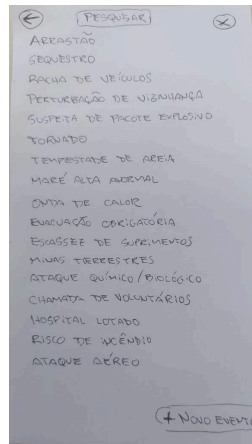 PESQUISAR
ARRASTÃO
SEQUESTRO
RACHA DE VEÍCULOS
PERTURBAÇÃO DE VIZINHANÇA
SUSPEITA DE PACOTE EXPLOSIVO
TORNADO
TEMPESTADE DE AREIA
MARÉ ALTA ANORMAL
ONDA DE CALOR
EVACUAÇÃO OBRIGATÓRIA
ESCASSEZ DE SUPRIMENTOS
MINAS TERRESTRES
ATAQUE QUÍMICO/BIOLÓGICO
CHAMADA DE VOLUNTÁRIOS
HOSPITAL LOTADO
RISCO DE INCÊNDIO
ATAQUE AÉREO
+ NOVO EVENTO